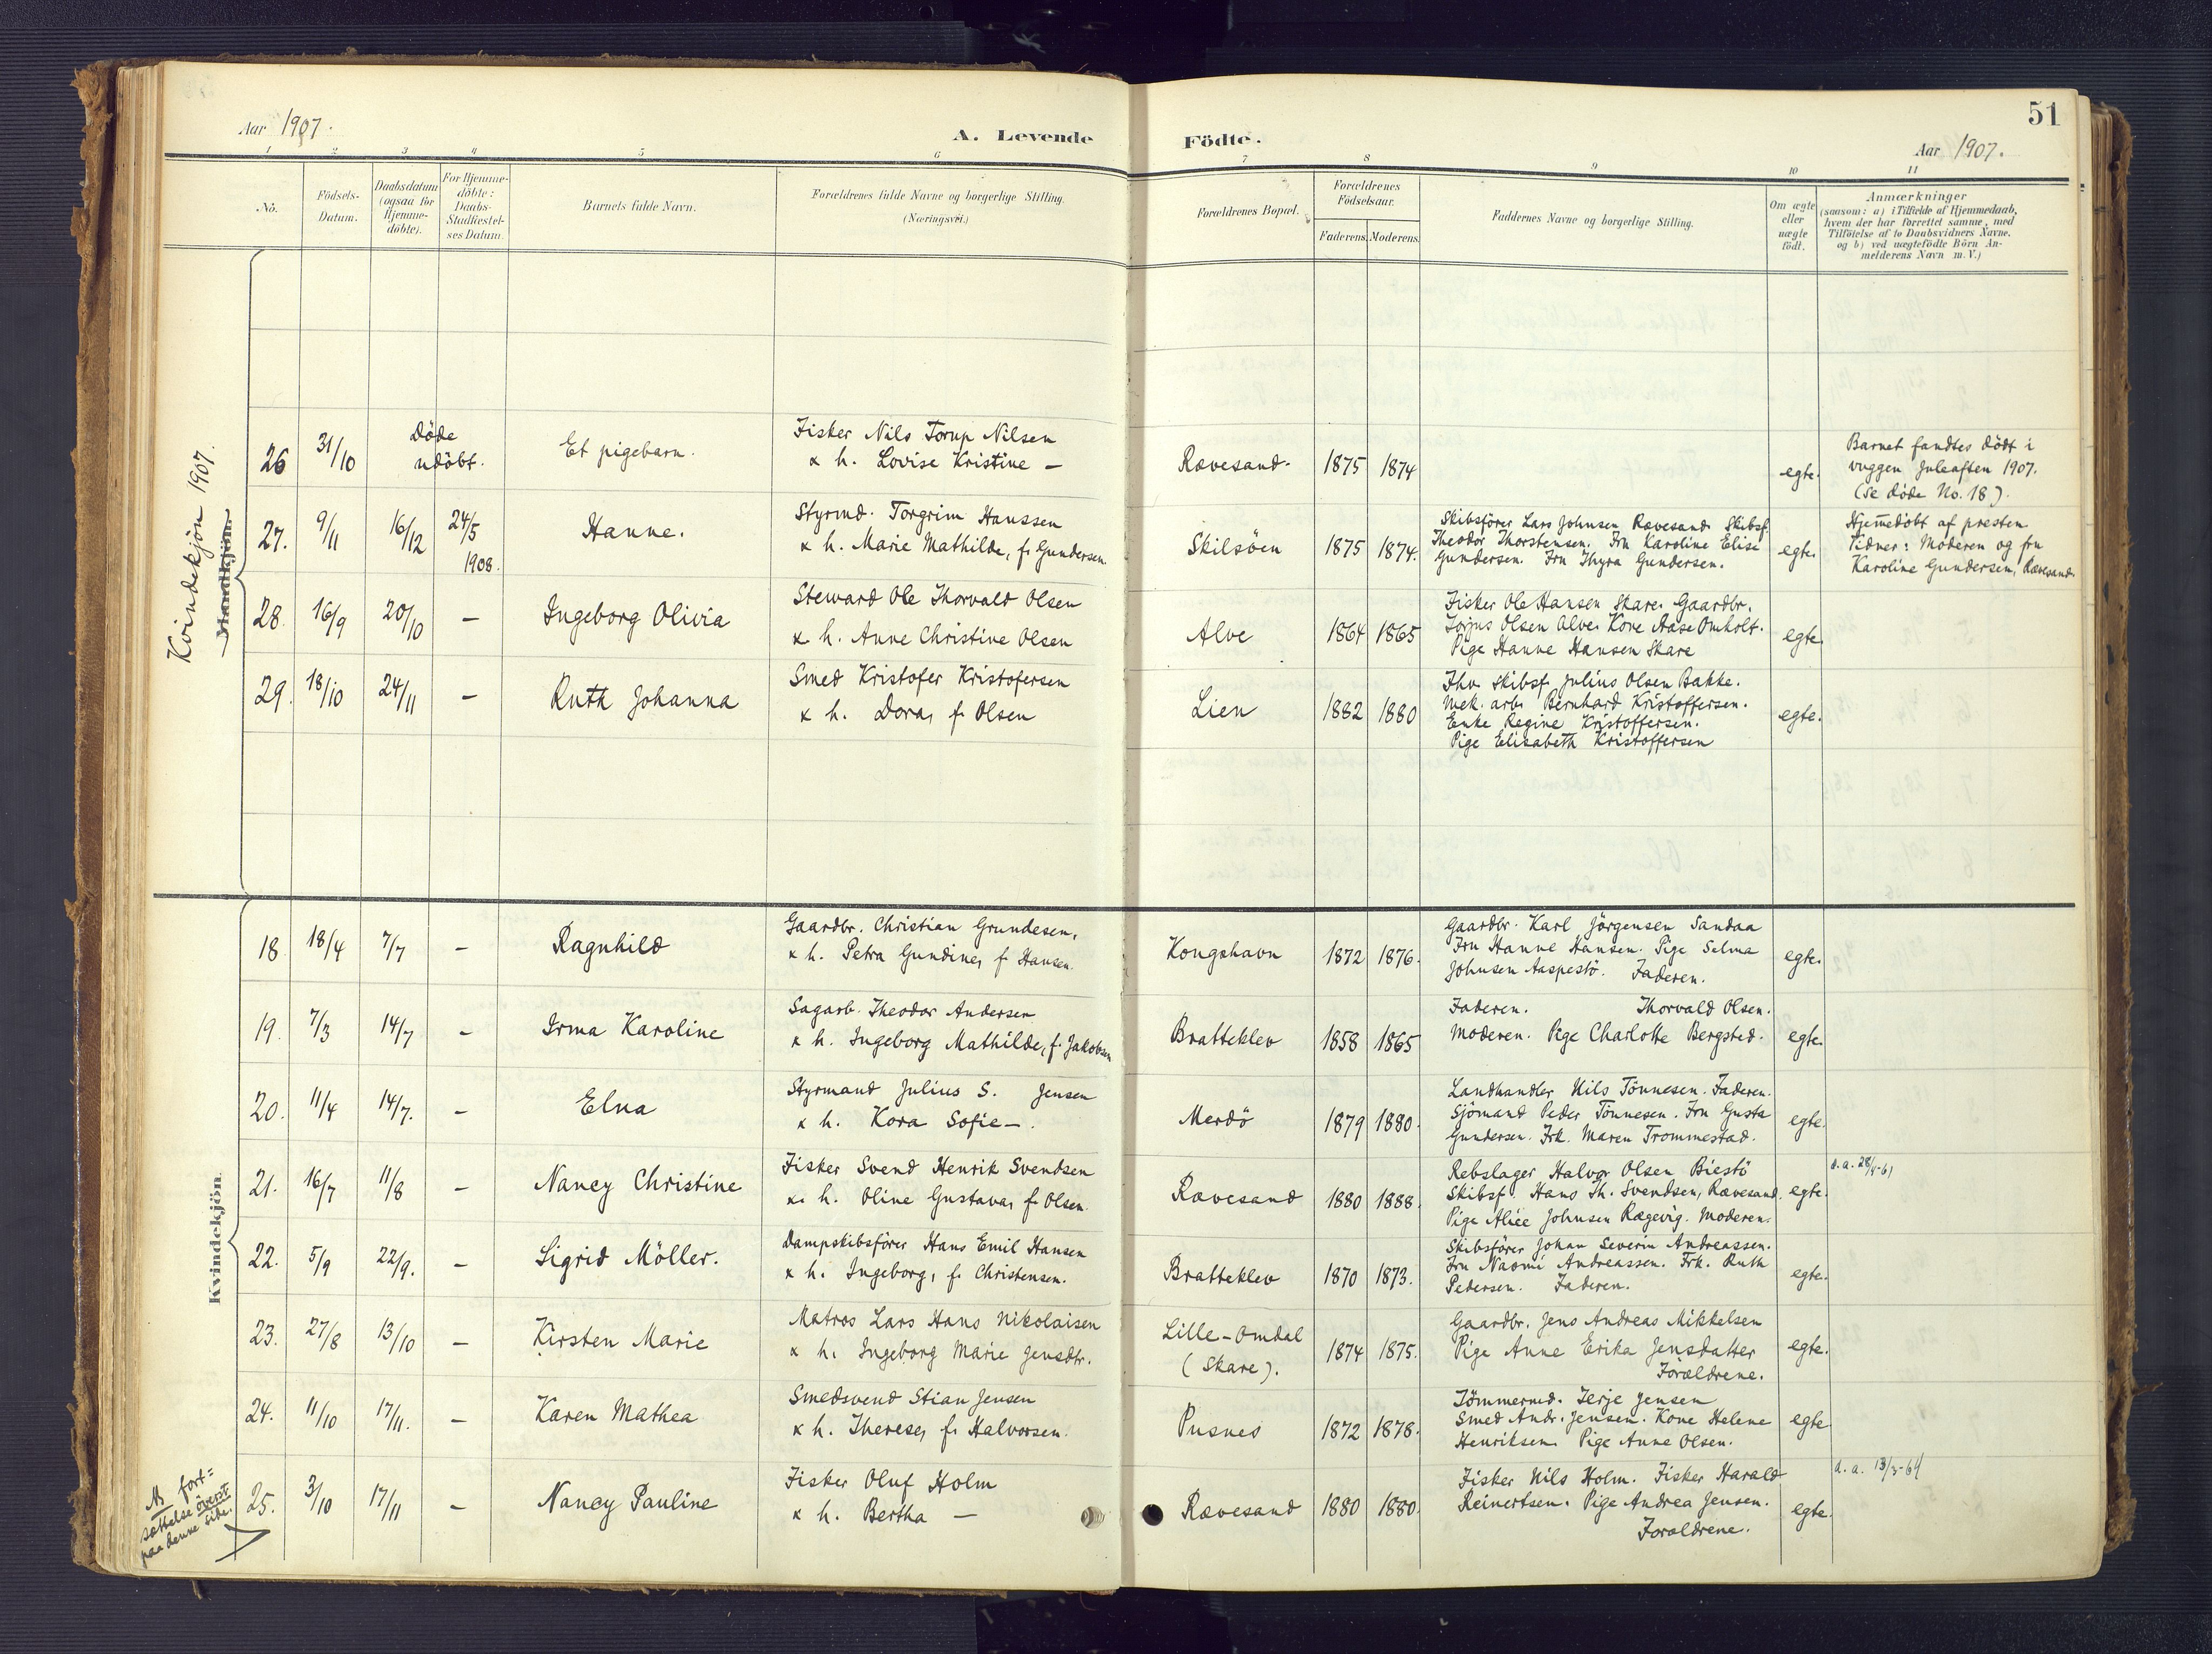 51
Aar 1907.
A. Levende Födte.
Aar 1907.
1 2 3 4 5 6 7 8 9 10 11
No.
Födsels-Datum.
Daabsdatum (ogsaa for Hjemme-döbte).
For Hjemme-döbte: Daabs-Stadfæstel-ses Datum.
Barnets fulde Navn.
Forældrenes fulde Navne og borgerlige Stilling.
(Næringsvei.)
Forældrenes Bopæl.
Forældrenes Födselsaar.
Faderens. Moderens.
Faddernes Navne og borgerlige Stilling.
Om ægte eller uægte födt.
Anmærkninger
(saasom: a) i Tilfælde af Hjemmedaab,
hvem der har forrettet samme, med
Tilföielse af to Daabsvidners Navne,
og b) ved uægtefödte Börn An-
melderens Navn m. V.)
Kvindekjön 1907.
Mandkjön.
26 31/10 Döde udöbt. Et pigebarn.
Fisker Nils Torup Nilsen
& h. Lovise Kristine —
Rævesand. 1875 1874 egte.
Barnet fandtes dödt i
vuggen juleaften 1907.
(se döde No. 18).
27. 9/11 16/12 24/5 1908. Hanne.
Styrmd. Torgrim Hanssen
& h. Marie Mathilde, f. Gundersen.
Skilsöen 1875 1874.
Skibsförer Lars Johnsen Rævesand. Skibsf.
Theodor Thorstensen. Fru Karoline Elise
Gundersen. Fru Thyra Gundersen.
egte.
Hjemmedöbt af presten
Vidner: Moderen og fru
Karoline Gundersen, Rævesand.
28. 16/9 20/10 — Ingeborg Olivia
Steward Ole Thorvald Olsen
& h. Anne Christine Olsen
Alve 1864 1865
Fisker Ole Hansen Skare. Gaardbr.
Torjus Olsen Alve. Kone Aase Omholt.
Pige Hanne Hansen Skare
egte.
29. 18/10 24/11 — Ruth Johanna
Smed Kristofer Kristofersen
& h. Dora, f. Olsen
Lien 1882 1880
Fhv. Skibsf. Julius Olsen Bakke.
Mek. arb. Bernhard Kristoffersen.
Enke Regine Kristoffersen.
Pige Elisabeth Kristoffersen
egte.
Kvindekjön.
18 18/4 7/7 — Ragnhild
Gaardbr. Christian Grundesen,
& h. Petra Gundine, f. Hansen.
Kongshavn 1872 1876.
Gaardbr. Karl Jörgensen Sandaa
Fru Hanne Hansen. Pige Selma
Johnsen Aaspestö. Faderen.
egte.
19. 7/3 14/7 — Irma Karoline
Sagarb. Theodor Andersen
& h. Ingeborg Mathilde, f. Jakobsen
Bratteklev 1858 1865
Faderen. Thorvald Olsen.
Moderen. Pige Charlotte Bergsted.
egte.
20. 11/4 14/7. — Elna
Styrmand Julius S. Jensen
& h. Kora Sofie —.
Merdö 1879 1880.
Landhandler Nils Tönnesen. Faderen.
Sjömand Peder Tönnesen. Fru Gusta
Gundersen. Frk. Maren Trommestad.
egte.
21. 16/7 11/8 — Nancy Christine
Fisker Svend Henrik Svendsen
& h. Oline Gustava, f. Olsen.
Rævesand 1880 1888.
Rebslager Halvor Olsen Biestö
Skibsf. Hans Th. Svendsen, Rævesand.
Pige Alice Johnsen Rægevig. Moderen.
egte.
d.a. 28/4-61
22. 5/9 22/9. — Sigrid Möller.
Dampskibsförer Hans Emil Hansen
& h. Ingeborg, f. Christensen.
Bratteklev 1870 1873.
Skibsförer Johan Severin Andreassen.
Fru Naomi Andreassen. Frk. Ruth
Pedersen. Faderen.
egte.
23. 27/8 13/10 — Kirsten Marie
Matros Lars Hans Nikolaisen
& h. Ingeborg Marie Jensdtr.
Lille-Omdal
(Skare).
1874 1875.
Gaardbr. Jens Andreas Mikkelsen
Pige Anne Erika Jensdatter
Forældrene.
egte.
24. 11/10 17/11. — Karen Mathea
Smedsvend Stian Jensen
& h. Therese, f. Halvorsen.
Pusnes 1872 1878.
Tömmermd. Terje Jensen
Smed Andr. Jensen. Kone Helene
Henriksen. Pige Anne Olsen.
egte
25. 3/10 17/11 — Nancy Pauline
Fisker Oluf Holm
& h. Bertha —
Rævesand 1880 1880.
Fisker Nils Holm. Fisker Harald
Reinertsen. Pige Andrea Jensen.
Forældrene.
egte.
d.a. 13/3-64
fort=
sættelse överst
paa denne side.